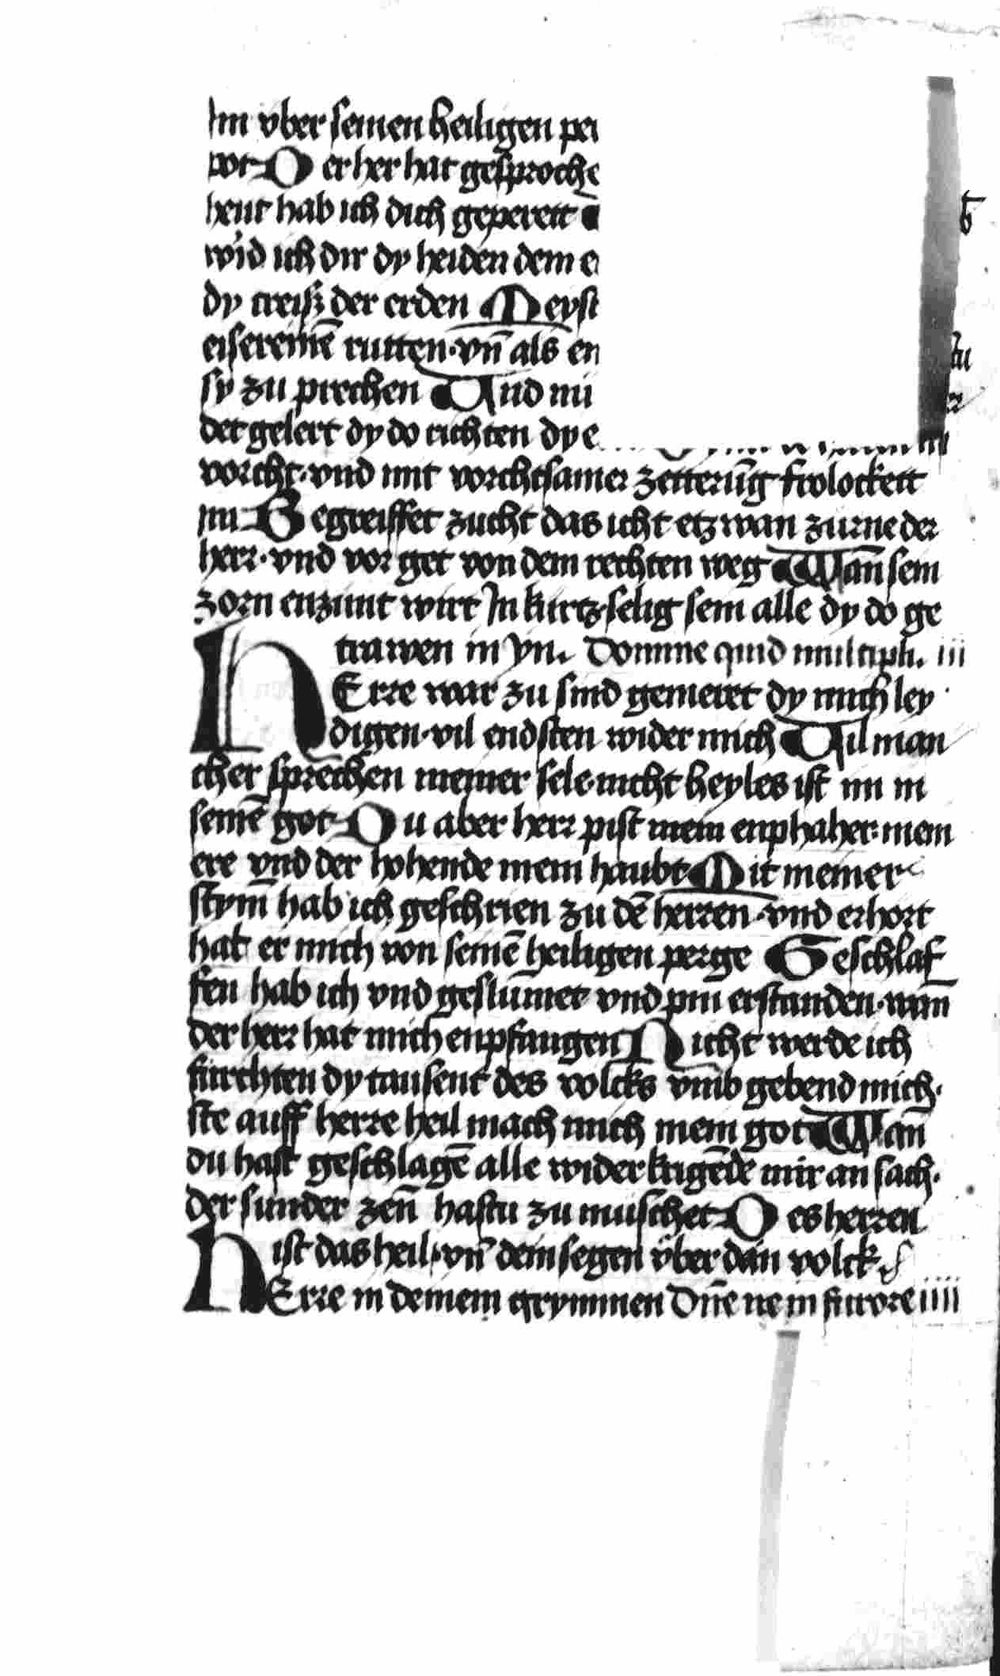 vber seinen heiligen
pot Der her hat gesproche
heut hab ich dich geperett
wird ich dir dy heiden dem
dy creiß der erden Meyst
eisereinē rutten·vn̄ als
sy zu prechen Vnd nu
det gelert dy do richten dy e
vorcht·vnd mit vorchtsamer zitterūg frolockett
im Begreiffet zucht das icht etzwan zurne der
herr·vnd vor get von dem rechten weg Wan̄ sein
zorn enzunt wirt In kurtz·selig sein alle dy do ge
trawen in yn. Domine quid multipli. iii
HErre war zu sind gemeret dy mich ley
digen·vil endsten wider mich Vil man
cher sprechen meiner sele·nicht heyles ist im in
seinē got Du aber herr pist mein enphaher·mein
ere vnd der hohende mein haubt Mit meiner
stym̄ hab ich geschrien zu dē herren·vnd erhort
hat er mich von seinē heiligen perge Geschlaf
fen hab ich vnd geslum̄et vnd pin erstanden·wan̄
der herr hat mich enpfangen Nicht werde ich
furchten dy tausent des volcks vm̄b gebend mich·
ste auff herre heil mach mich mein got Wan̄
du hast geschlagē alle widerkrigēde mir an sach·
der sunder zen̄ hastu zu muschet Des herren
ist das heil·vn̄ dein segen vber dain volck
HErre in deinem grymmen Dn̄e ne in furore iiii